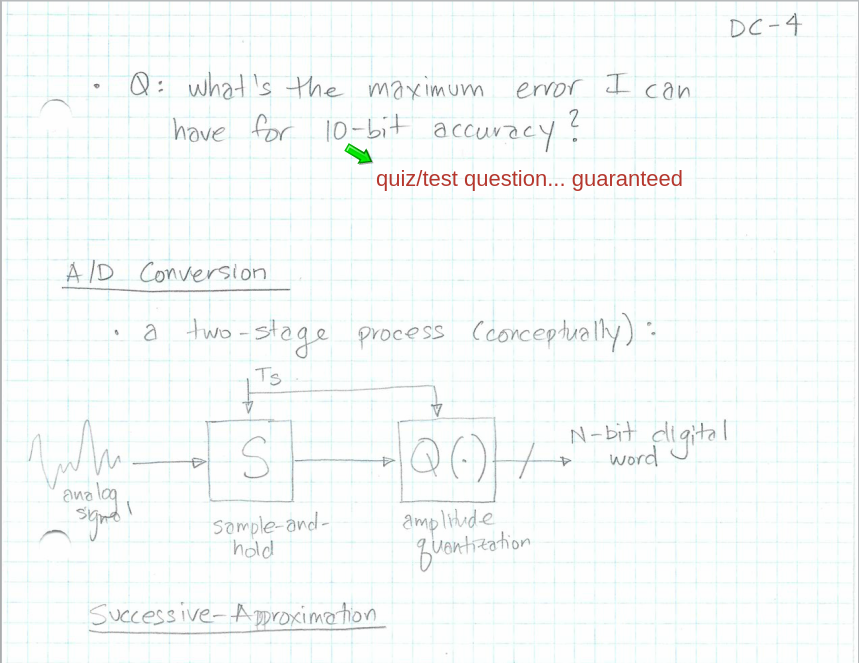 DC-4
• Q: what's the maximum error I can
have for 10-bit accuracy?
quiz/test question... guaranteed
A/D Conversion
• a two-stage process (conceptually):
Ts
S
Q(·)
N-bit digital
word
analog
signal
sample-and-
hold
amplitude
quantization
Successive-Approximation